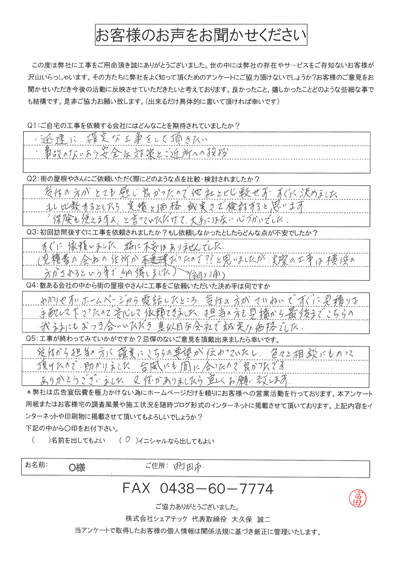 お客様のお声をお聞かせください
この度は弊社に工事をご用命頂き誠にありがとうございました。世の中には弊社の存在やサービスをご存知ないお客様が
沢山いらっしゃいます、その方たちに弊社をよく知って頂くためのアンケートにご協力頂けないでしょうか?お客様のご意見をお
聞かせいただき今後の活動に反映させていただきたいと考えております。良かったこと、嬉しかったことどのような些細な事で
も結構です。是非ご協力お願い致します。(出来るだけ具体的に書いて頂ければ幸いです)
Q1:ご自宅の工事を依頼する会社にはどんなことを期待されていましたか?
・迅速に、確実な工事をして頂きたい
・事故のないよう安全な対策とご近所への挨拶
Q2:街の屋根やさんにご依頼いただく際にどのような点を比較・検討されましたか?
受付の方がとても感じ良かったので他社と比較せずすぐに決めました
もし比較するとしたら、実績と価格、誠実さで検討すると思います
保険も使えますよ、と言っていただけて、大変には 心づよいでした。
Q3:初回訪問後すぐに工事を依頼されましたか?もし依頼しなかったとしたらどんな点が不安でしたか?
すぐに依頼しました。特に不安はありませんでした。
(見積書の会社の住所が木更津だったので??と思いましたが実際の工事は横浜の
方がされるという事で納得しました)
Q4:数ある会社の中から街の屋根やさんにご依頼いただいた決め手は何ですか
わかりやすいホームページから電話したところ、受付の方がていねいですぐに見積りを
手配して下さったので安心して依頼できました。担当の方も見積から最後までこちらの
わがままにもお付き合いいただき真面目な会社で誠実な価格でした。
Q5:工事が終わってみていかがですか?忌憚のないご意見を頂戴出来ましたら幸いです。
受付から担当の方に確実にこちらの要望が伝わっていたし、色々と相談にものって
頂けたので助かりました。台風にも間に合ったので良かったです
ありがとうございました。又何かありましたら宜しくお願い致します。
＊弊社は広告宣伝費を極力かけない為にホームページだけを頼りにお客様への営業活動を行っております。本アンケート
用紙またはお客様宅の調査風景や施工状況を随時ブログ形式のインターネットに掲載させて頂いております。上記内容をイ
ンターネットや印刷物に掲載させて頂いてもよろしいでしょうか?
下記の中から〇印をお付下さい。
( )名前を出してもよい (O)イニシャルなら出してもよい
お名前: O様 ご住所: 町田市
FAX 0438-60-7774
ご協力ありがとうございました。
株式会社シェアテック 代表取締役 大久保 誠二
当アンケートで取得したお客様の個人情報は関係法規に基づき厳正に管理いたします。